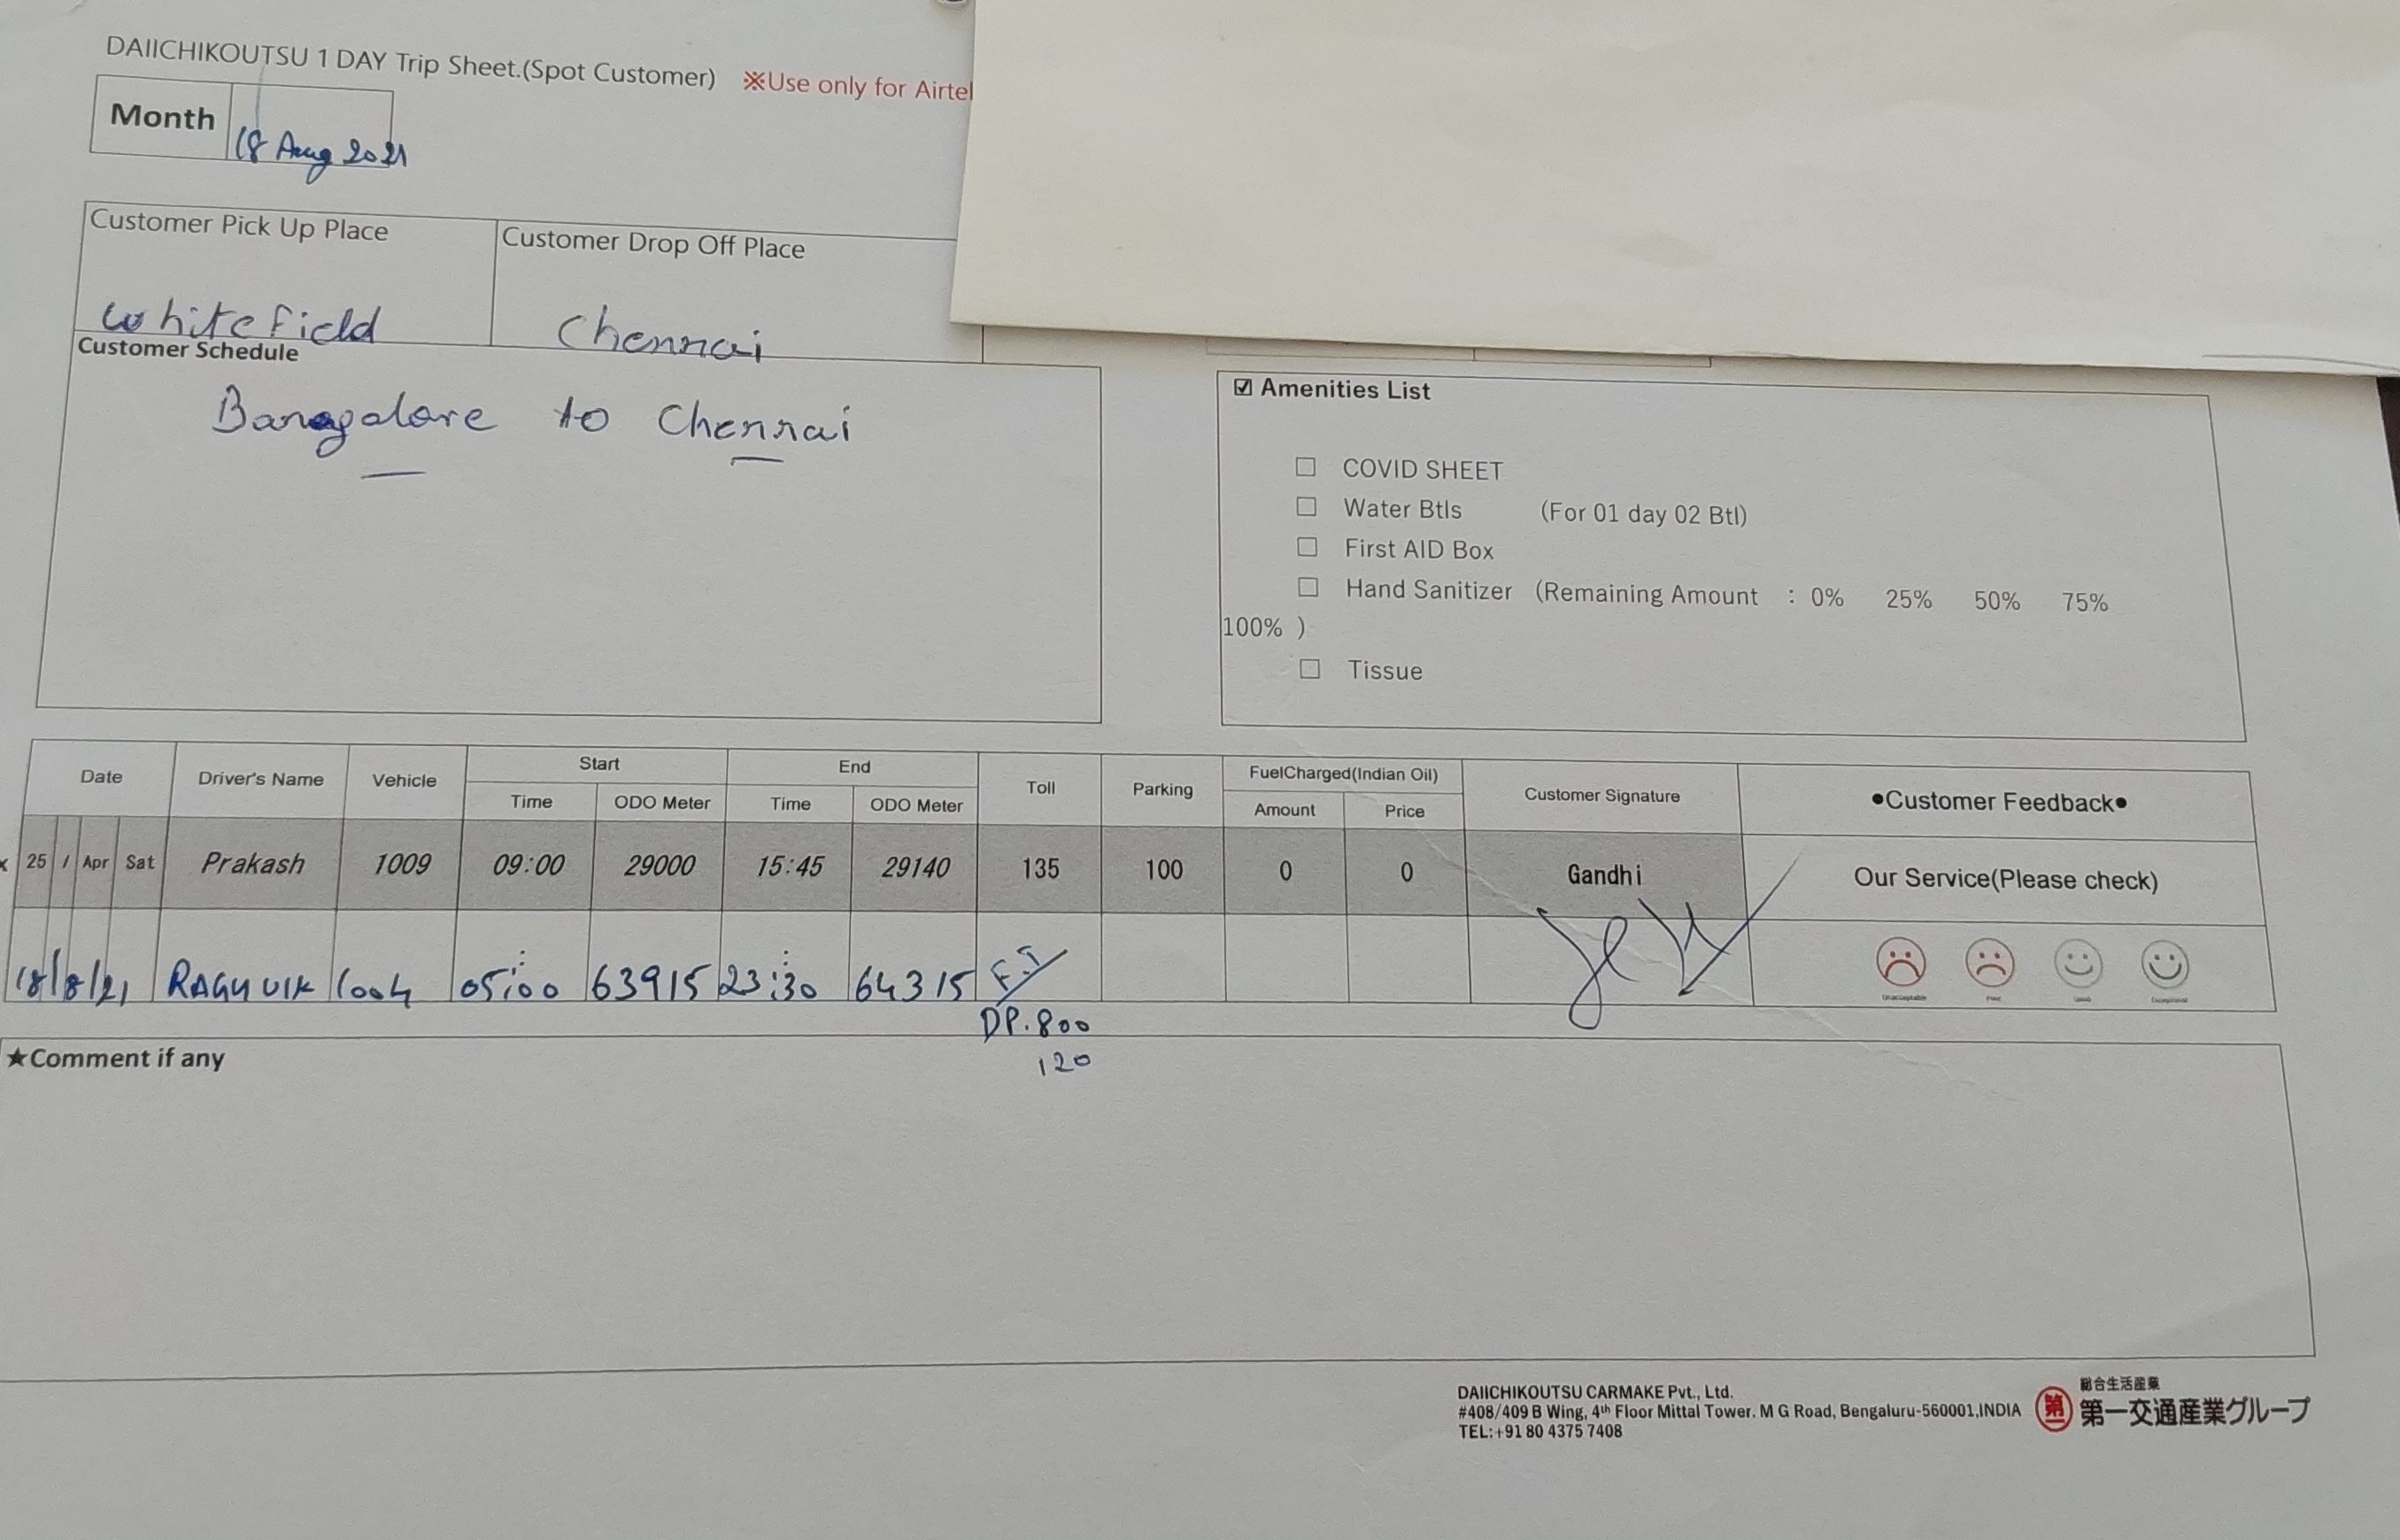 DAIICHIKOUTSU 1 DAY Trip Sheet.(Spot Customer) ※Use only for Airtel
Month 18 Aug 2021
Customer Pick Up Place Customer Drop Off Place
Whitefield Chennai
Customer Schedule
Bangalore to Chennai
☑ Amenities List
☐ COVID SHEET
☐ Water Btls (For 01 day 02 Btl)
☐ First AID Box
☐ Hand Sanitizer (Remaining Amount : 0% 25% 50% 75%
100% )
☐ Tissue
Date Driver's Name Vehicle Start End Toll Parking FuelCharged(Indian Oil) Customer Signature ●Customer Feedback●
Time ODO Meter Time ODO Meter Amount Price
25 / Apr Sat Prakash 1009 09:00 29000 15:45 29140 135 100 0 0 Gandhi Our Service(Please check)
18/8/21 1004 05:00 63915 23:30 64315
Unacceptable Poor Good Exceptional
DP.800
120
★Comment if any
DAIICHIKOUTSU CARMAKE Pvt., Ltd.
#408/409 B Wing, 4th Floor Mittal Tower. M G Road, Bengaluru-560001,INDIA
TEL:+91 80 4375 7408
総合生活産業
第一交通産業グループ